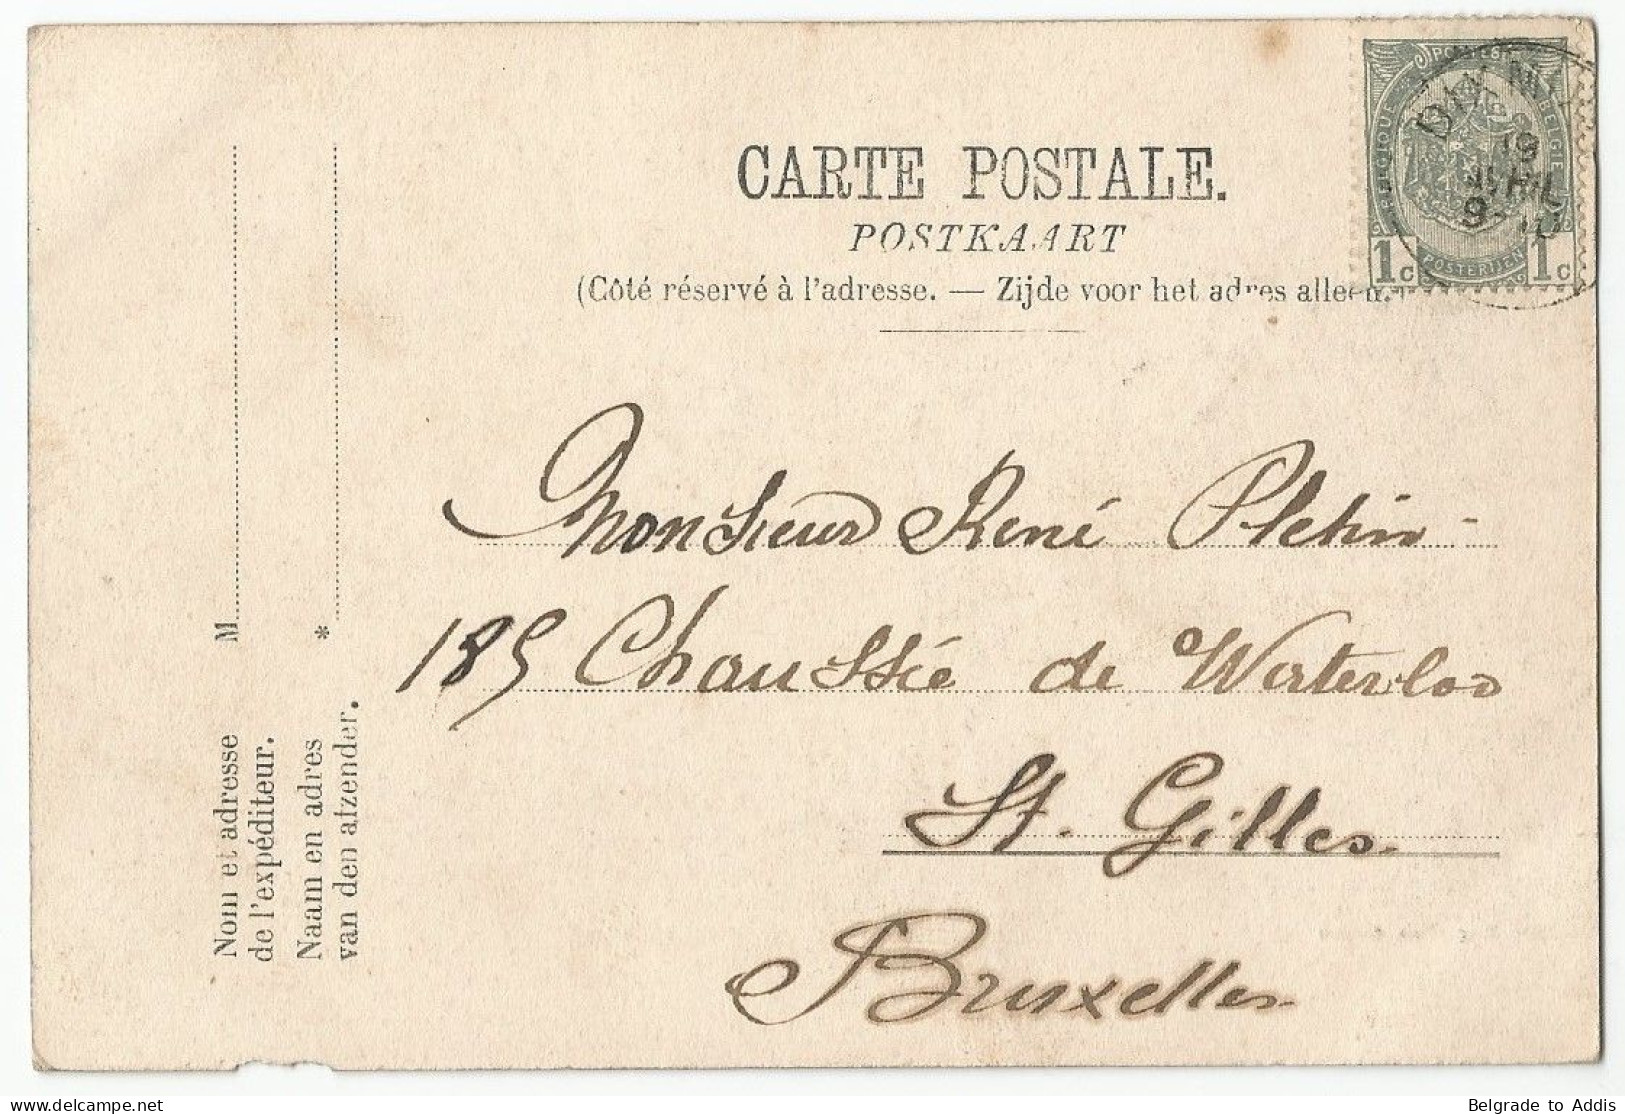 CARTE POSTALE.
POSTKAART
(Côté réservé à l'adresse. — Zijde voor het adres alleen.)
POSTES
BELGIQUE
BELGIE
1c
POSTERIJEN
1c
Monsieur René Pletin
185 Chaussée de Waterloo
St. Gilles
Bruxelles
M
*
Nom et adresse
de l'expéditeur.
Naam en adres
van den afzender.
Belgrade to Addis